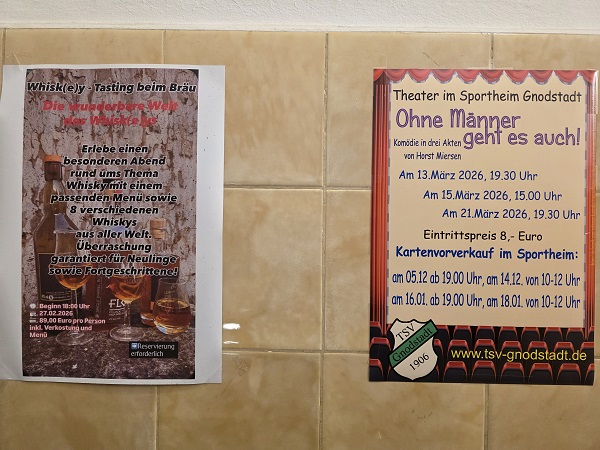 Whisk(e)y - Tasting beim Bräu
Die wunderbare Welt
des Whisk(e)ys
Erlebe einen
besonderen Abend
rund ums Thema
Whisky mit einem
passenden Menü sowie
8 verschiedenen
Whiskys
aus aller Welt.
Überraschung
garantiert für Neulinge
sowie Fortgeschrittene!
Beginn 18:00 Uhr
27.02.2026
89,00 Euro pro Person
inkl. Verkostung und
Menü
Reservierung
erforderlich
Theater im Sportheim Gnodstadt
Ohne Männer
geht es auch!
Komödie in drei Akten
von Horst Miersen
Am 13.März 2026, 19.30 Uhr
Am 15.März 2026, 15.00 Uhr
Am 21.März 2026, 19.30 Uhr
Eintrittspreis 8,- Euro
Kartenvorverkauf im Sportheim:
am 05.12 ab 19.00 Uhr, am 14.12. von 10-12 Uhr
am 16.01. ab 19.00 Uhr, am 18.01. von 10-12 Uhr
TSV
Gnodstadt
1906
www.tsv-gnodstadt.de